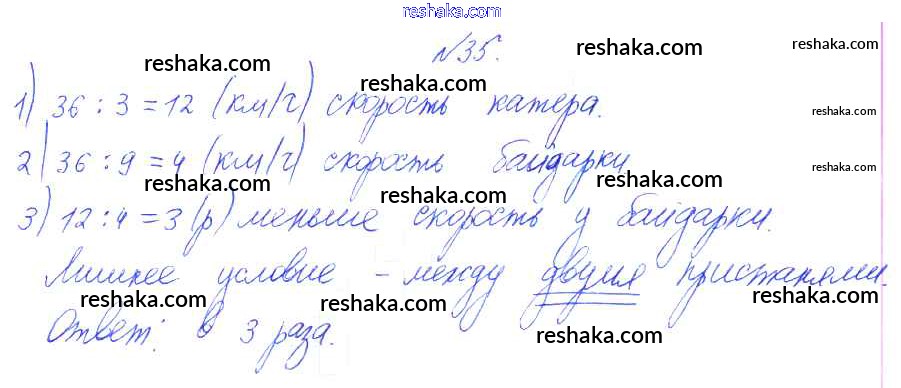 reshaka.com
№35.
reshaka.com reshaka.com reshaka.com
reshaka.com
1) 36 : 3 = 12 (км/ч) скорость катера.
reshaka.com
2) 36 : 9 = 4 (км/ч) скорость байдарки
reshaka.com reshaka.com reshaka.com
reshaka.com
3) 12 : 4 = 3 (р) меньше скорость у байдарки.
Лишнее условие - между двумя пристанями.
reshaka.com reshaka.com reshaka.com
Ответ: в 3 раза.
reshaka.com